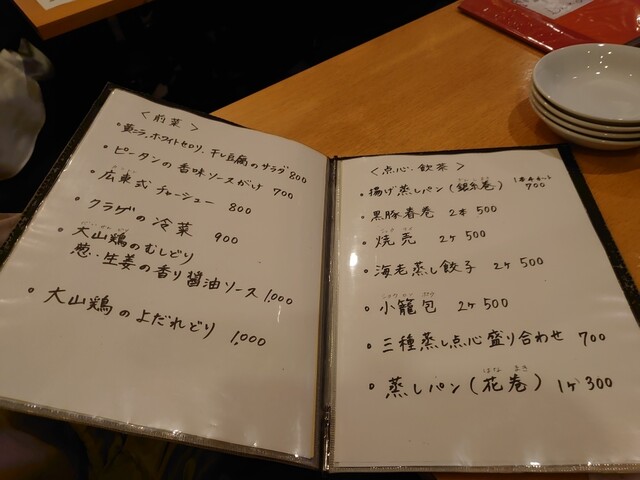 〈前菜〉
・黄ニラ、ホワイトセロリ、干し豆腐のサラダ 800
・ピータンの香味ソースがけ 700
・広東式チャーシュー 800
・クラゲの冷菜 900
・大山鶏のむしどり
葱・生姜の香り醤油ソース 1,000
・大山鶏のよだれどり 1,000
〈点心・飲茶〉
・揚げ蒸しパン(銀糸巻) 700
・黒豚春巻 2本 500
・焼売 2ヶ 500
・海老蒸し餃子 2ヶ 500
・小籠包 2ヶ 500
・三種蒸し点心盛り合わせ 700
・蒸しパン(花巻) 1ヶ 300